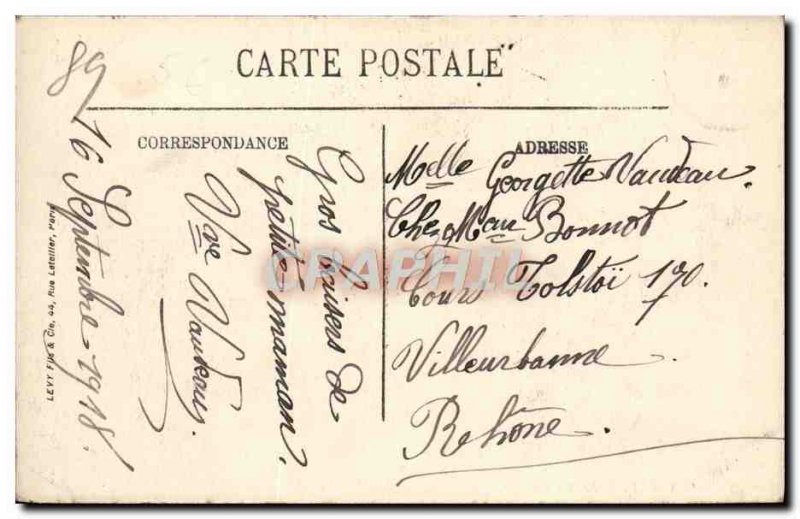 CARTE POSTALE
CORRESPONDANCE
ADRESSE
89
16 Septembre 1918.
Gros baisers de
petite maman.
Vve Naudeau.
Melle Georgette Naudeau.
Chez Mme Bonnot
Cours Tolstoï 170.
Villeurbanne
Rhône.
LEVY Fils & Cie, 44, Rue Letellier, Paris
CPAPHIL